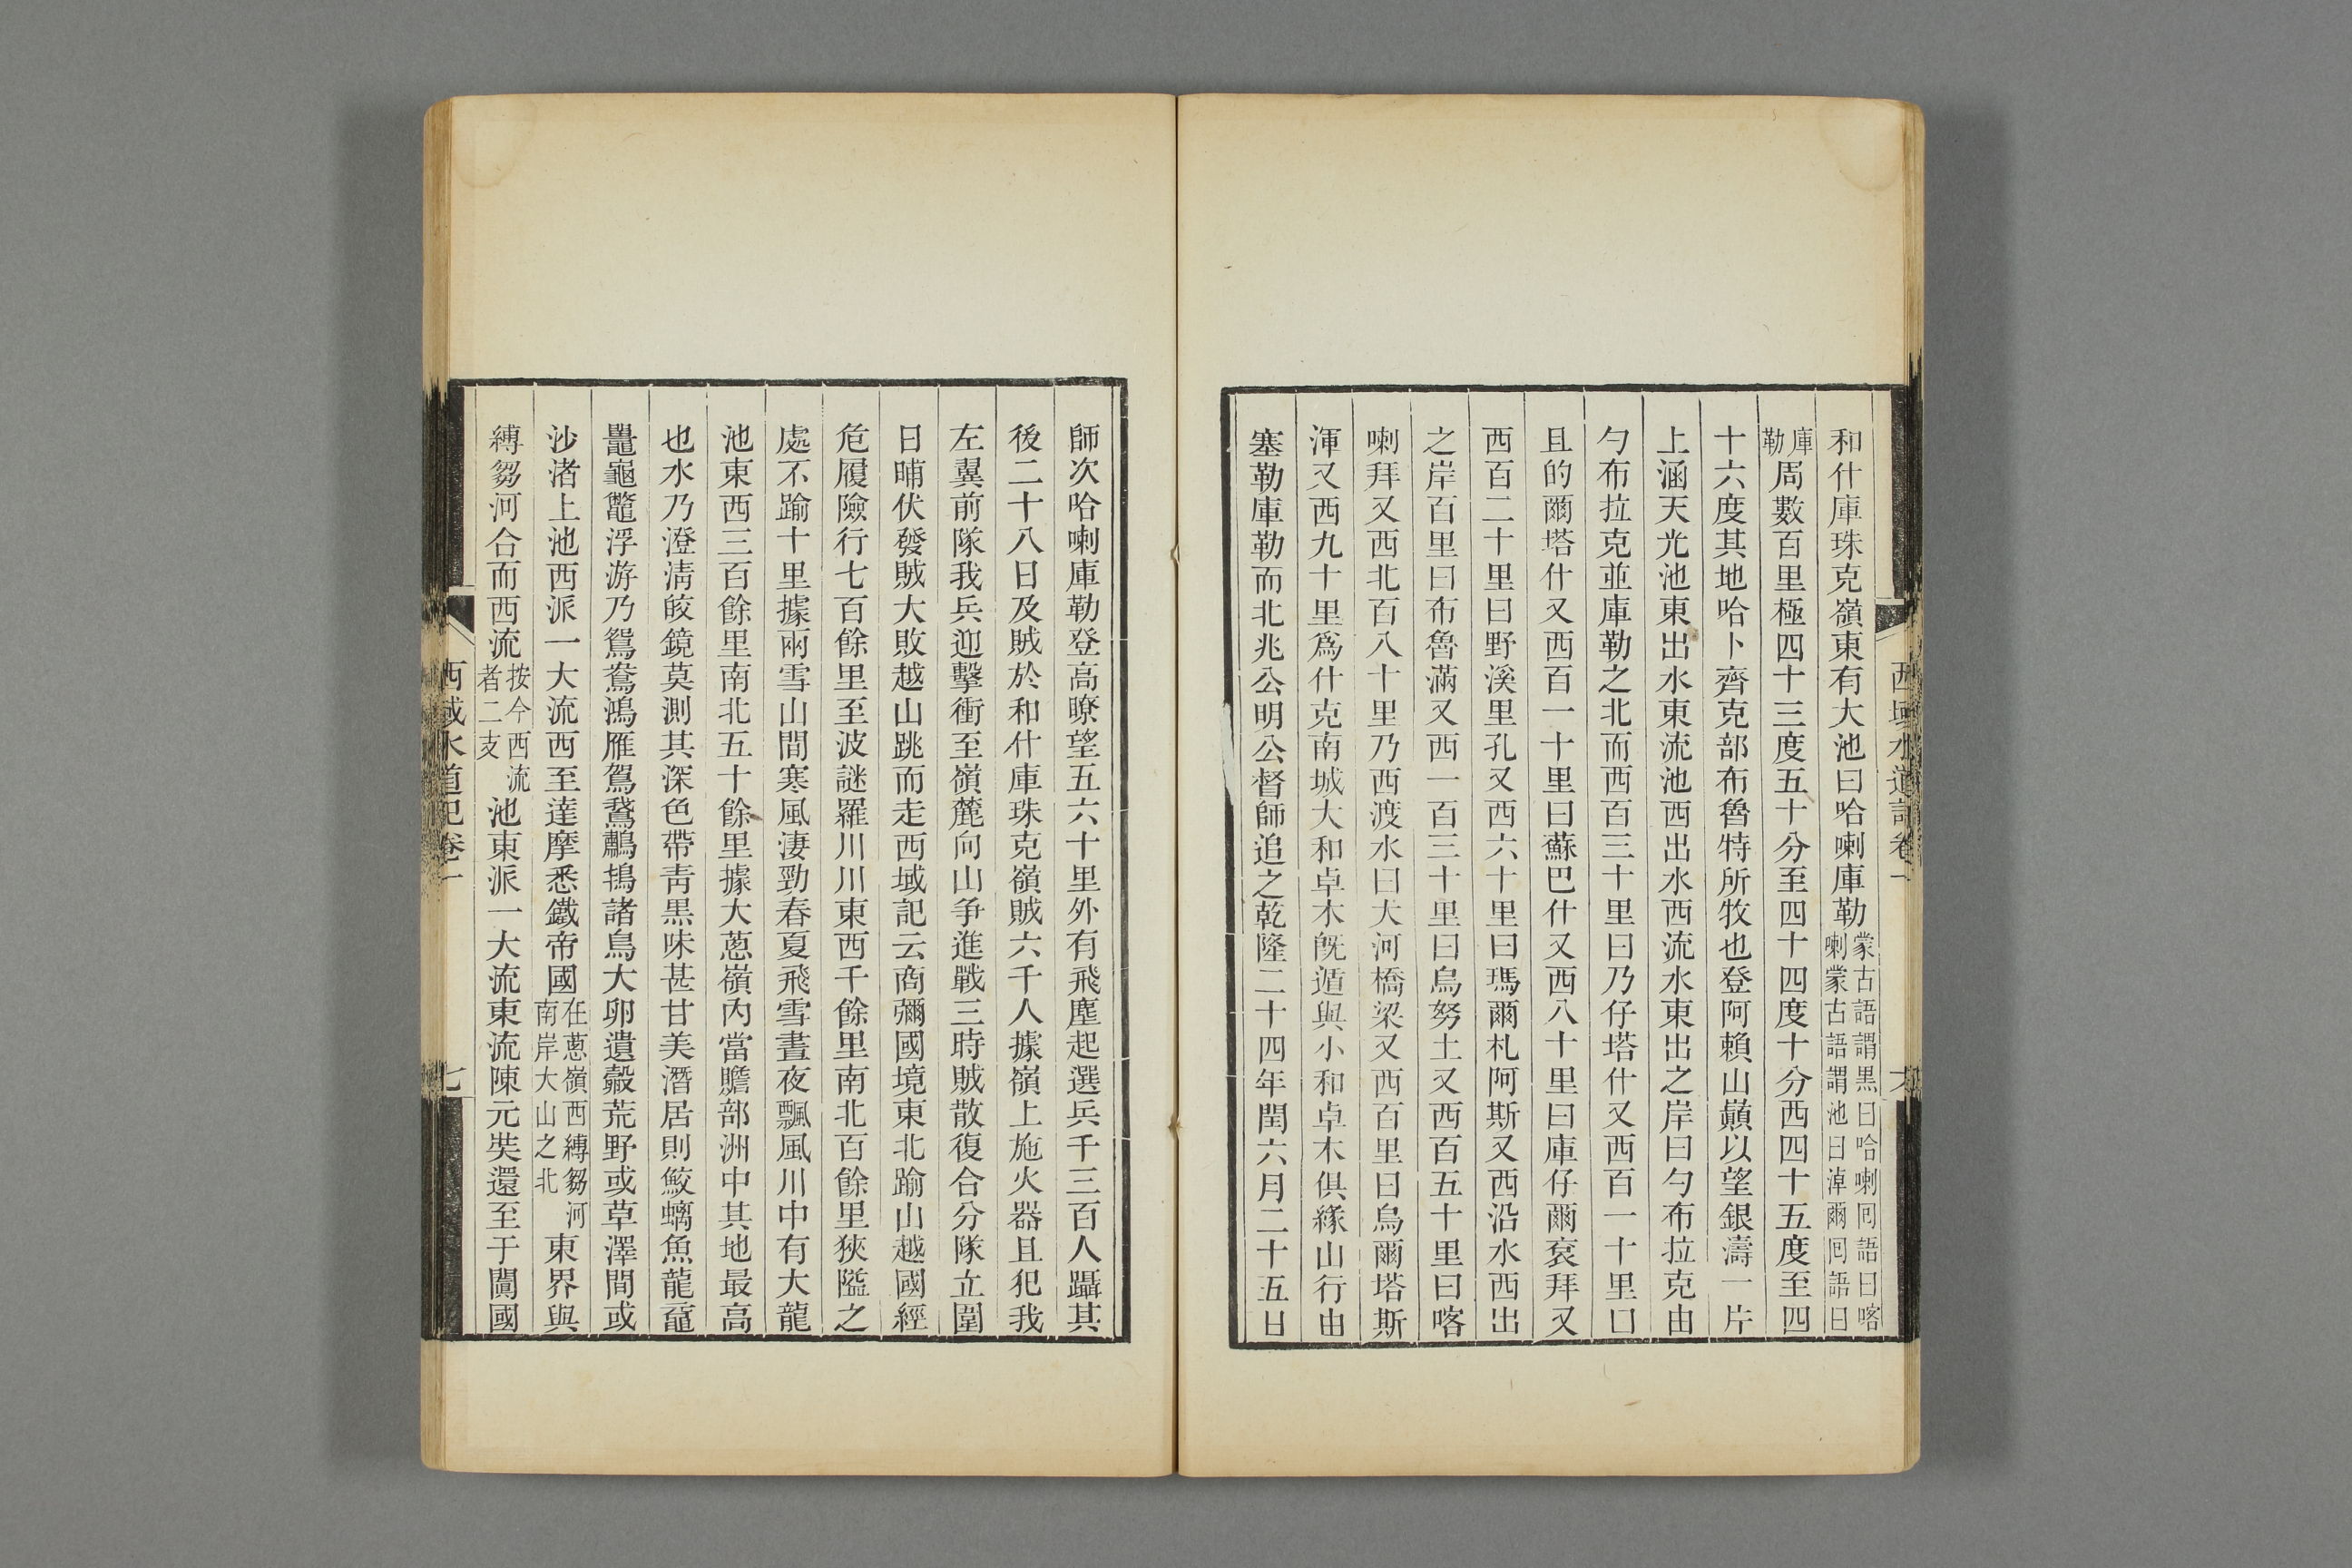 西域水道記卷一
和什庫珠克嶺東有大池曰哈喇庫勒蒙古語謂黑曰哈喇囘語曰喀喇蒙古語謂池曰淖爾囘語曰
庫勒周數百里極四十三度五十分至四十四度十分西四十五度至四
十六度其地哈卜齊克部布魯特所牧也登阿賴山巔以望銀濤一片
上涵天光池東出水東流池西出水西流水東出之岸曰勺布拉克由
勺布拉克並庫勒之北而西百三十里曰乃仔塔什又西百一十里曰
且的爾塔什又西百一十里曰蘇巴什又西八十里曰庫仔爾袞拜又
西百二十里曰野溪里孔又西六十里曰瑪爾札阿斯又西沿水西出
之岸百里曰布魯滿又西一百三十里曰烏努土又西百五十里曰喀
喇拜又西北百八十里乃西渡水曰大河橋梁又西百里曰烏爾塔斯
渾又西九十里爲什克南城大和卓木旣遁與小和卓木俱緣山行由
塞勒庫勒而北兆公明公督師追之乾隆二十四年閏六月二十五日
師次哈喇庫勒登高瞭望五六十里外有飛塵起選兵千三百人躡其
後二十八日及賊於和什庫珠克嶺賊六千人據嶺上施火器且犯我
左翼前隊我兵迎擊衝至嶺麓向山爭進戰三時賊散復合分隊立圍
日晡伏發賊大敗越山跳而走西域記云商彌國境東北踰山越國經
危履險行七百餘里至波謎羅川川東西千餘里南北百餘里狹隘之
處不踰十里據兩雪山間寒風淒勁春夏飛雪晝夜飄風川中有大龍
池東西三百餘里南北五十餘里據大蔥嶺內當贍部洲中其地最高
也水乃澄淸皎鏡莫測其深色帶靑黑味甚甘美潛居則鮫螭魚龍黿
鼉龜鼈浮游乃鴛鴦鴻雁鴐鵞鷫鳵諸鳥大卵遺鷇荒野或草澤間或
沙渚上池西派一大流西至達摩悉鐵帝國在蔥嶺西縛芻河南岸大山之北東界與
縛芻河合而西流按今西流者二支池東派一大流東流陳元奘還至于闐國
西域水道記卷一
七